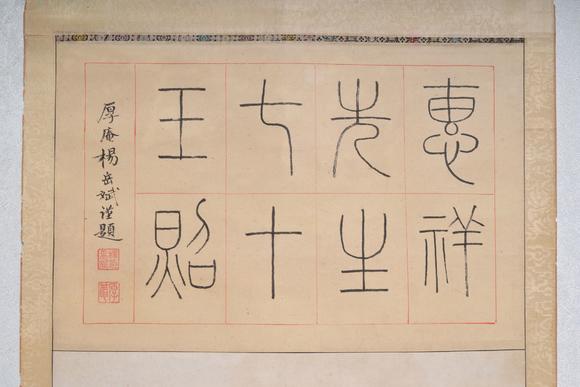 惠祥
先生
七十
玉照
厚庵楊岳斌謹題